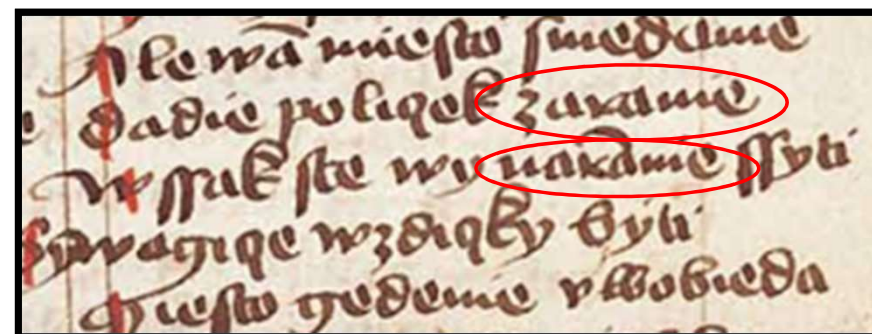 Ale wã miesto sniedanie
dadie poliqek zaranie
Wssak ste wy narãnie ssyti
Bywagiqe wzdiqky byti
Miesto gedenie vwobieda